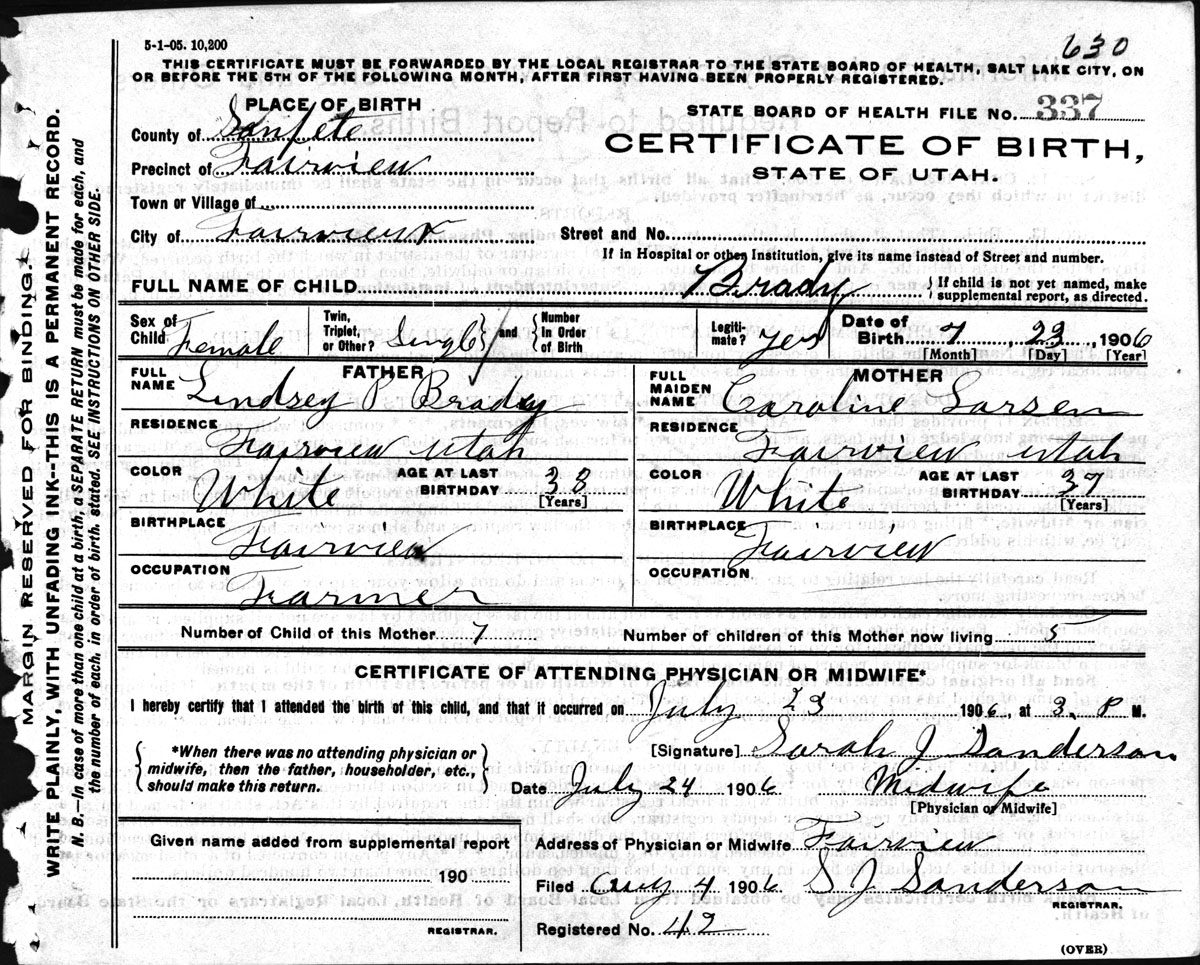 630
5-1-05. 10,200
THIS CERTIFICATE MUST BE FORWARDED BY THE LOCAL REGISTRAR TO THE STATE BOARD OF HEALTH, SALT LAKE CITY, ON
OR BEFORE THE 5TH OF THE FOLLOWING MONTH, AFTER FIRST HAVING BEEN PROPERLY REGISTERED.
PLACE OF BIRTH
STATE BOARD OF HEALTH FILE No. 337
County of Sanpete
CERTIFICATE OF BIRTH,
Precinct of Fairview
STATE OF UTAH.
Town or Village of
City of Fairview Street and No.
If in Hospital or other Institution, give its name instead of Street and number.
FULL NAME OF CHILD Brady { If child is not yet named, make supplemental report, as directed.
Sex of Child Female Twin, Triplet, or Other? Single } and { Number In Order of Birth Legiti-mate? yes Date of Birth 7 23 1906
[Month] [Day] [Year]
FATHER
FULL NAME Lindsey P Brady
RESIDENCE
Fairview Utah
COLOR White AGE AT LAST BIRTHDAY 38 [Years]
BIRTHPLACE
Fairview
OCCUPATION
Farmer
MOTHER
FULL MAIDEN NAME Caroline Larsen
RESIDENCE
Fairview Utah
COLOR White AGE AT LAST BIRTHDAY 37 [Years]
BIRTHPLACE
Fairview
OCCUPATION
Number of Child of this Mother 7 Number of children of this Mother now living 5
CERTIFICATE OF ATTENDING PHYSICIAN OR MIDWIFE*
I hereby certify that I attended the birth of this child, and that it occurred on July 23 1906, at 3. P M.
{ *When there was no attending physician or
midwife, then the father, householder, etc.,
should make this return. }
[Signature] Sarah J Sanderson
Date July 24 1906 Midwife
[Physician or Midwife]
Given name added from supplemental report
190
REGISTRAR.
Address of Physician or Midwife Fairview
Filed Aug 4 1906 S J Sanderson
REGISTRAR.
Registered No. 42
(OVER)
MARGIN RESERVED FOR BINDING.
WRITE PLAINLY, WITH UNFADING INK--THIS IS A PERMANENT RECORD.
N. B.—In case of more than one child at a birth, a SEPARATE RETURN must be made for each, and
the number of each, in order of birth, stated. SEE INSTRUCTIONS ON OTHER SIDE.